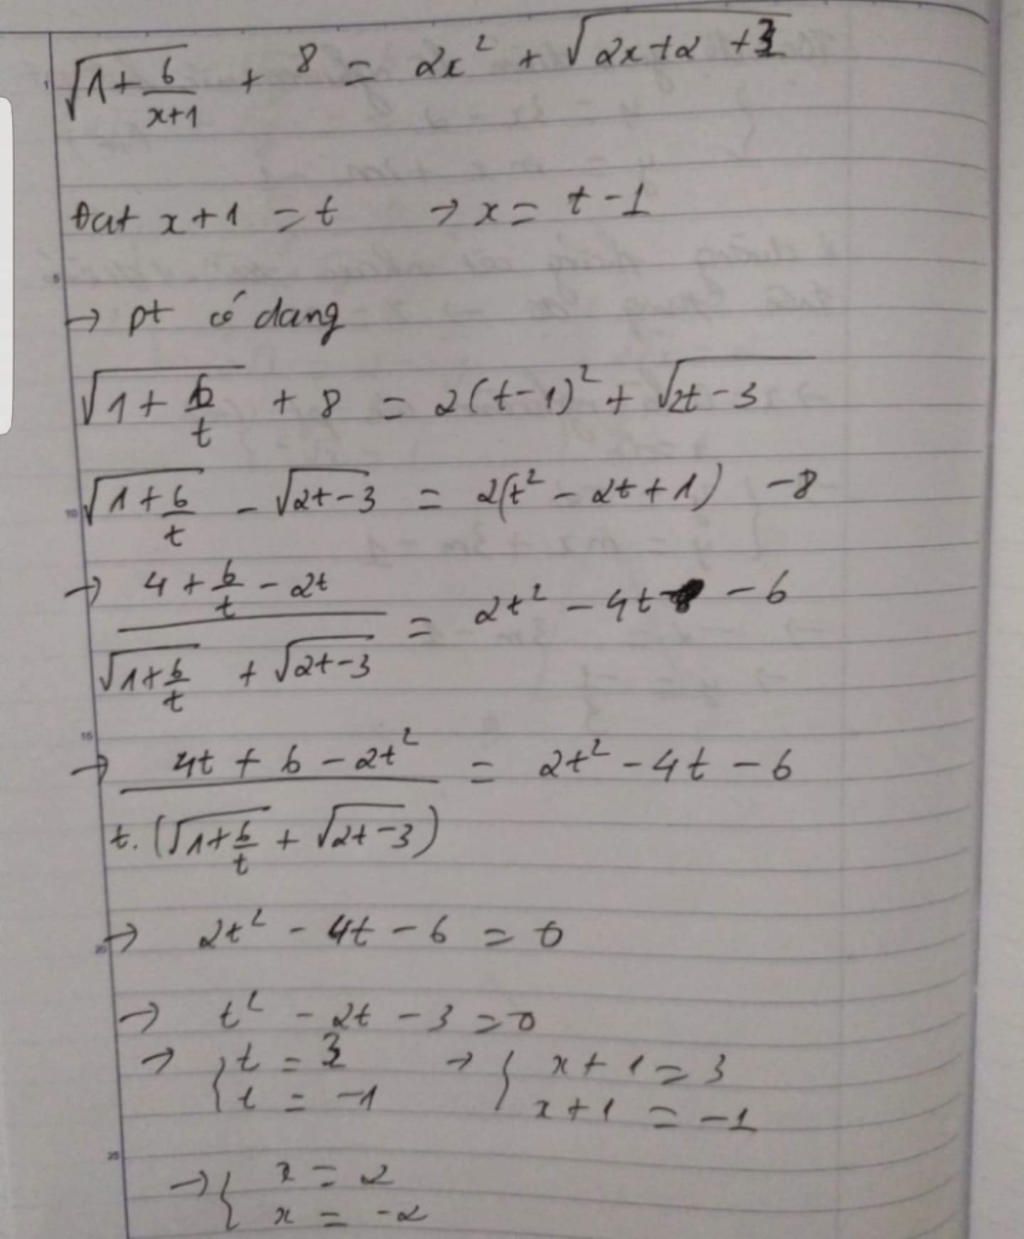 √(1 + 6/(x+1)) + 8 = 2x² + √(2x+2+3)
Đat x+1 = t → x = t-1
→ pt có dang
√(1 + 6/t) + 8 = 2(t-1)² + √(2t-3)
√(1+6/t) - √(2t-3) = 2(t² - 2t + 1) - 8
→ (4 + 6/t - 2t)/(√(1+6/t) + √(2t-3)) = 2t² - 4t - 6
→ (4t + 6 - 2t²)/(t.(√(1+6/t) + √(2t-3))) = 2t² - 4t - 6
→ 2t² - 4t - 6 = 0
→ t² - 2t - 3 = 0
→ { t = 3 → { x+1 = 3
t = -1 x+1 = -1
→ { x = 2
x = -2